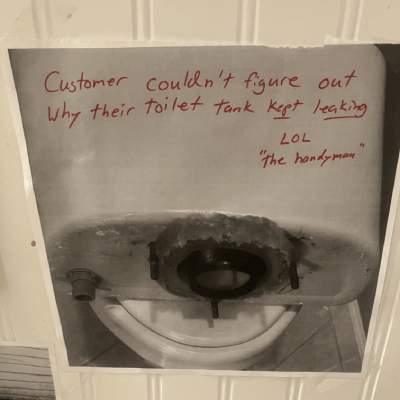 Customer couldn't figure out
Why their toilet tank kept leaking
LOL
"the handyman"